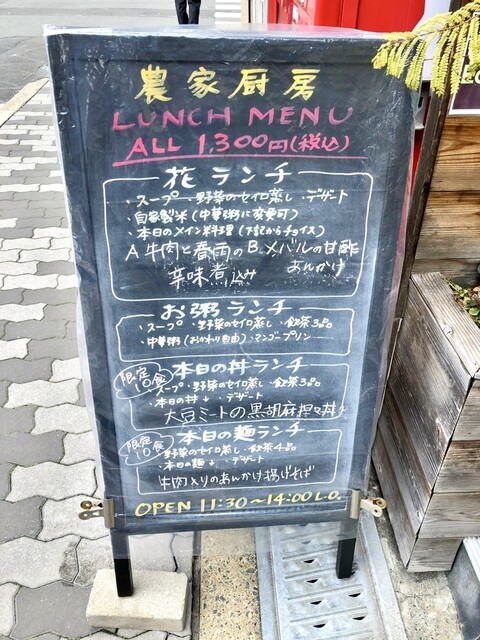 農家厨房
LUNCH MENU
ALL 1,300円(税込)
花ランチ
・スープ ・野菜のセイロ蒸し ・デザート
・自家製米(中華粥に変更可)
・本日のメイン料理(下記からチョイス)
A 牛肉と春雨の B メバルの甘酢
辛味煮込み あんかけ
お粥ランチ
・スープ ・野菜のセイロ蒸し ・飲茶3品
・中華粥(おかわり自由)・マンゴープリン
限定10食 本日の丼ランチ
・スープ ・野菜のセイロ蒸し ・飲茶3品
・本日の丼↓ ・デザート
大豆ミートの黒胡麻担々丼
限定10食 本日の麺ランチ
・野菜のセイロ蒸し ・飲茶4品
・本日の麺↓ ・デザート
牛肉入りのあんかけ揚げそば
OPEN 11:30～14:00 L.O.